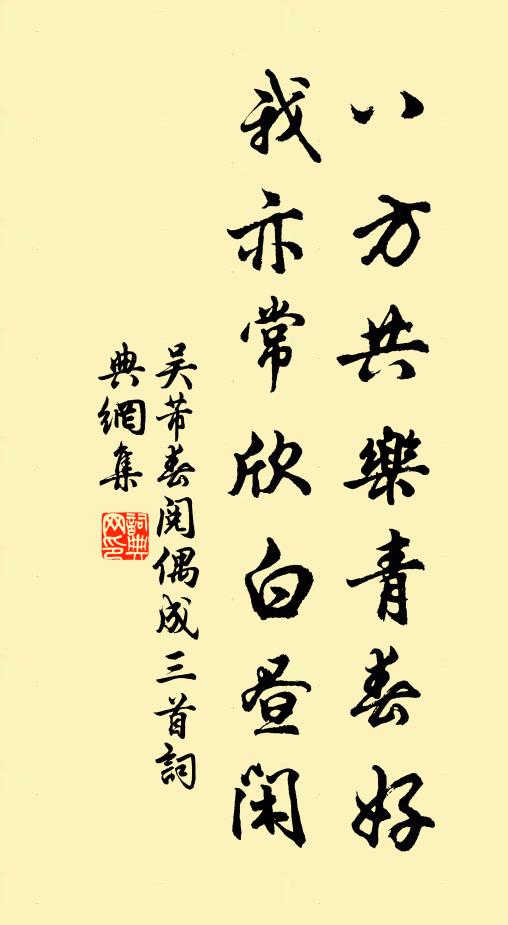 八方共樂青春好
我亦常欣白昼閑
吴芾春闋偶成三首詞
典網集
詞典網印